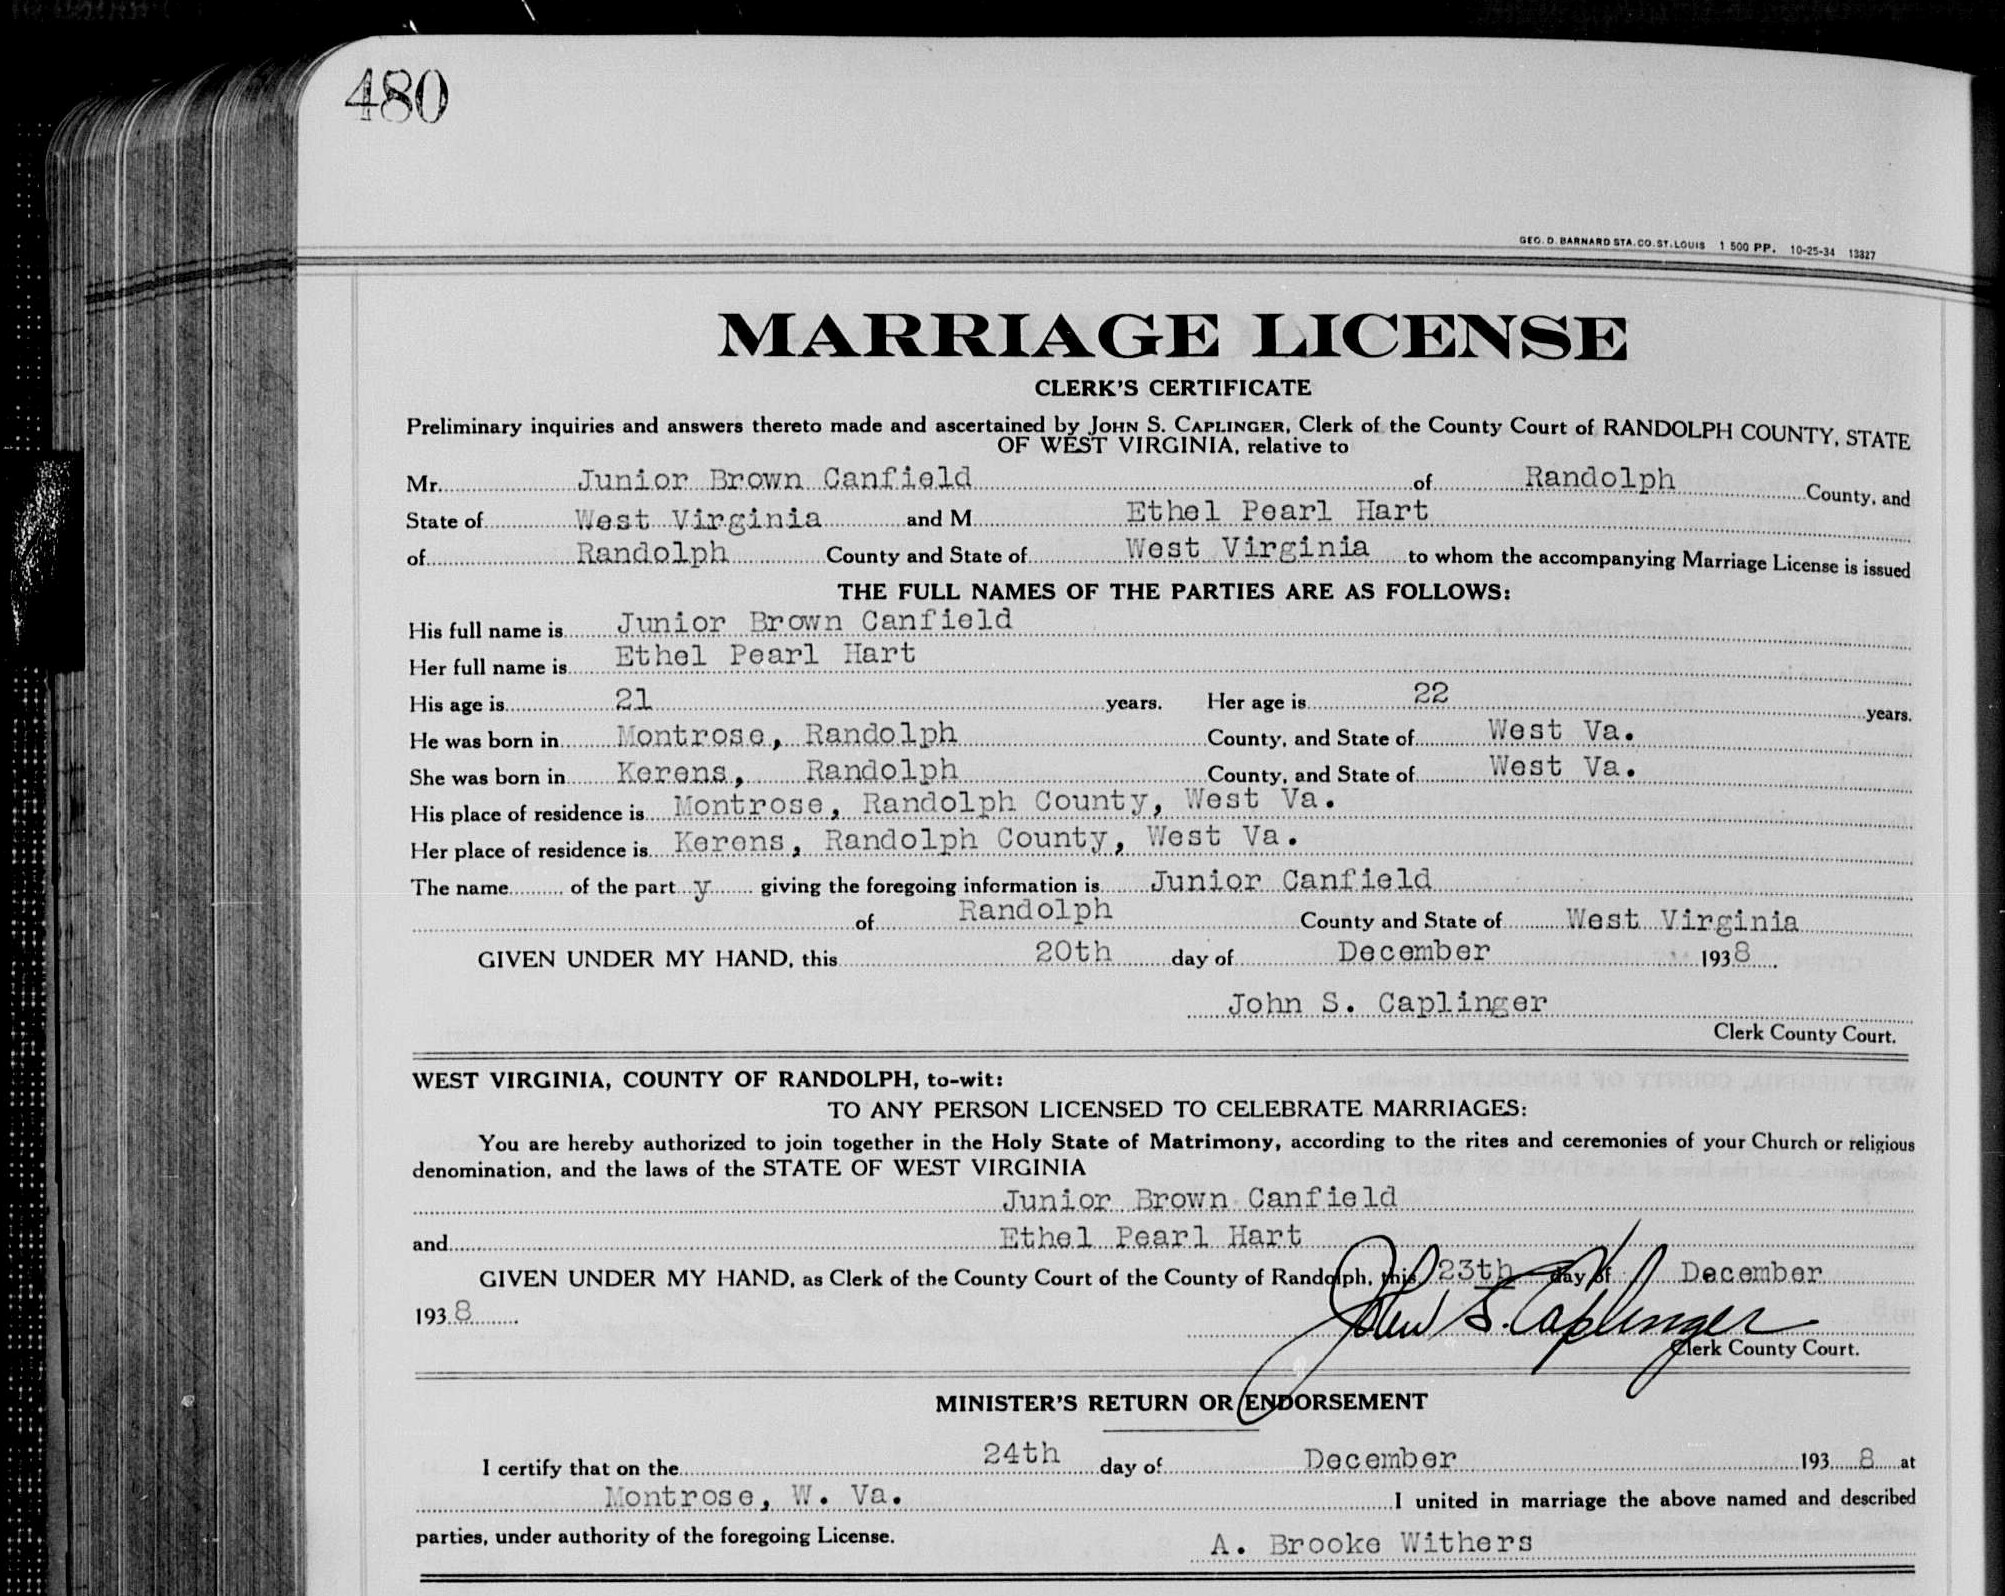 480
GEO. D. BARNARD STA. CO. ST. LOUIS 1 500 PP. 10-25-34 13327
MARRIAGE LICENSE
CLERK'S CERTIFICATE
Preliminary inquiries and answers thereto made and ascertained by JOHN S. CAPLINGER, Clerk of the County Court of RANDOLPH COUNTY, STATE
OF WEST VIRGINIA, relative to
Mr. Junior Brown Canfield of Randolph County, and
State of West Virginia and M Ethel Pearl Hart
of Randolph County and State of West Virginia to whom the accompanying Marriage License is issued
THE FULL NAMES OF THE PARTIES ARE AS FOLLOWS:
His full name is Junior Brown Canfield
Her full name is Ethel Pearl Hart
His age is 21 years. Her age is 22 years.
He was born in Montrose, Randolph County, and State of West Va.
She was born in Kerens, Randolph County, and State of West Va.
His place of residence is Montrose, Randolph County, West Va.
Her place of residence is Kerens, Randolph County, West Va.
The name of the part y giving the foregoing information is Junior Canfield
of Randolph County and State of West Virginia
GIVEN UNDER MY HAND, this 20th day of December 1938.
John S. Caplinger
Clerk County Court.
WEST VIRGINIA, COUNTY OF RANDOLPH, to-wit:
TO ANY PERSON LICENSED TO CELEBRATE MARRIAGES:
You are hereby authorized to join together in the Holy State of Matrimony, according to the rites and ceremonies of your Church or religious
denomination, and the laws of the STATE OF WEST VIRGINIA
Junior Brown Canfield
and Ethel Pearl Hart
GIVEN UNDER MY HAND, as Clerk of the County Court of the County of Randolph, this 23th day of December
1938.
John S. Caplinger
Clerk County Court.
MINISTER'S RETURN OR ENDORSEMENT
I certify that on the 24th day of December 1938 at
Montrose, W. Va. I united in marriage the above named and described
parties, under authority of the foregoing License.
A. Brooke Withers